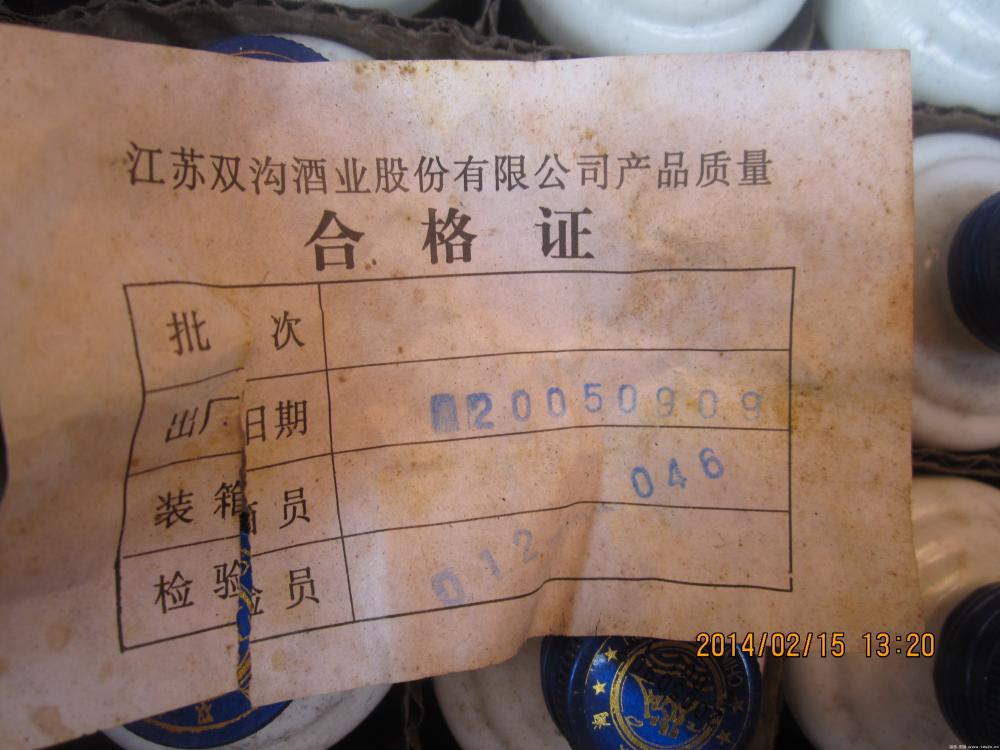 江苏双沟酒业股份有限公司产品质量
合格证
批次
出厂日期 20050909
装箱员 046
检验员 012
2014/02/15 13:20